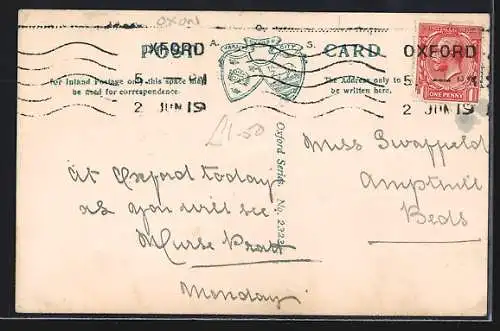 oxons
A. O. S.
POST CARD
For Inland Postage only this space may
be used for correspondence.
The Address only to
be written here.
OXFORD
5
2 JUN 19
OXFORD
5
2 JUN 19
ONE PENNY
£1-50
Oxford Series No.
Miss Swaffield
Ampthill
Beds
At Oxford today
as you will see
Nurse Pratt
Monday